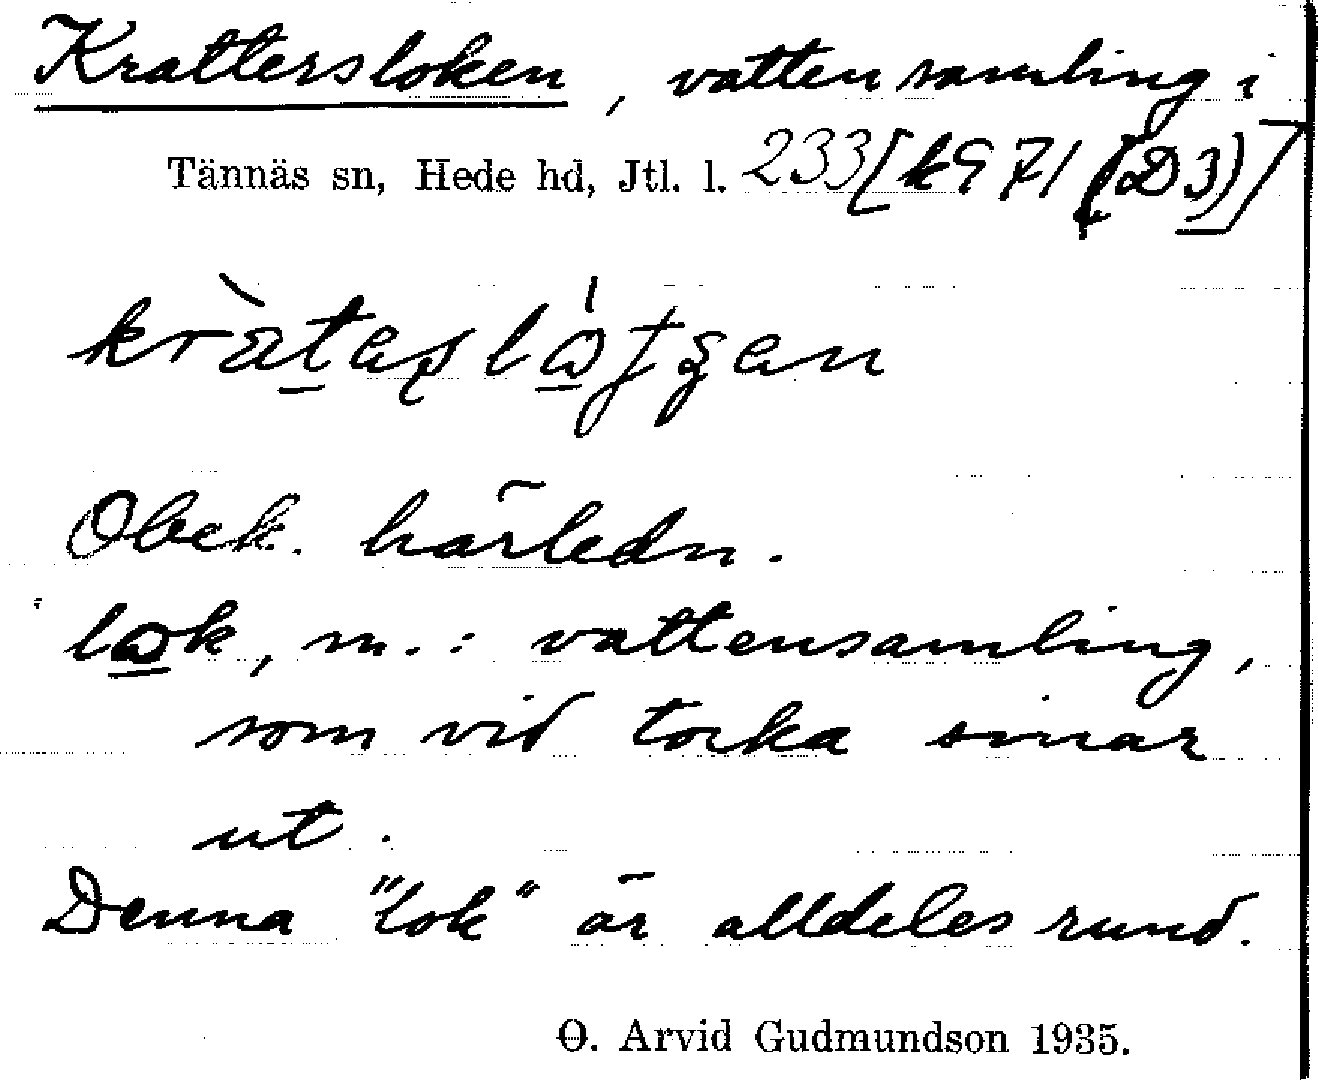 Krattersloken, vattensamling i
Tännäs sn, Hede hd, Jtl. l. 233 [k971 (D3)]
Obek. härledn.
lok, m.: vattensamling,
som vid torka sinar
ut.
Denna "lok" är alldeles rund.
O. Arvid Gudmundson 1935.